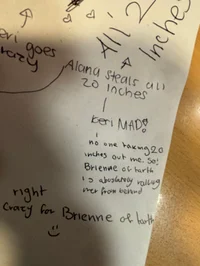 All 2
Inches
eri goes
crazy
Alana steals all
20 inches
Keri MAD!
no one taking 20
inches out me. So!
Brienne of tarth
is absolutely railing
her from behind
right
crazy for Brienne of tarth